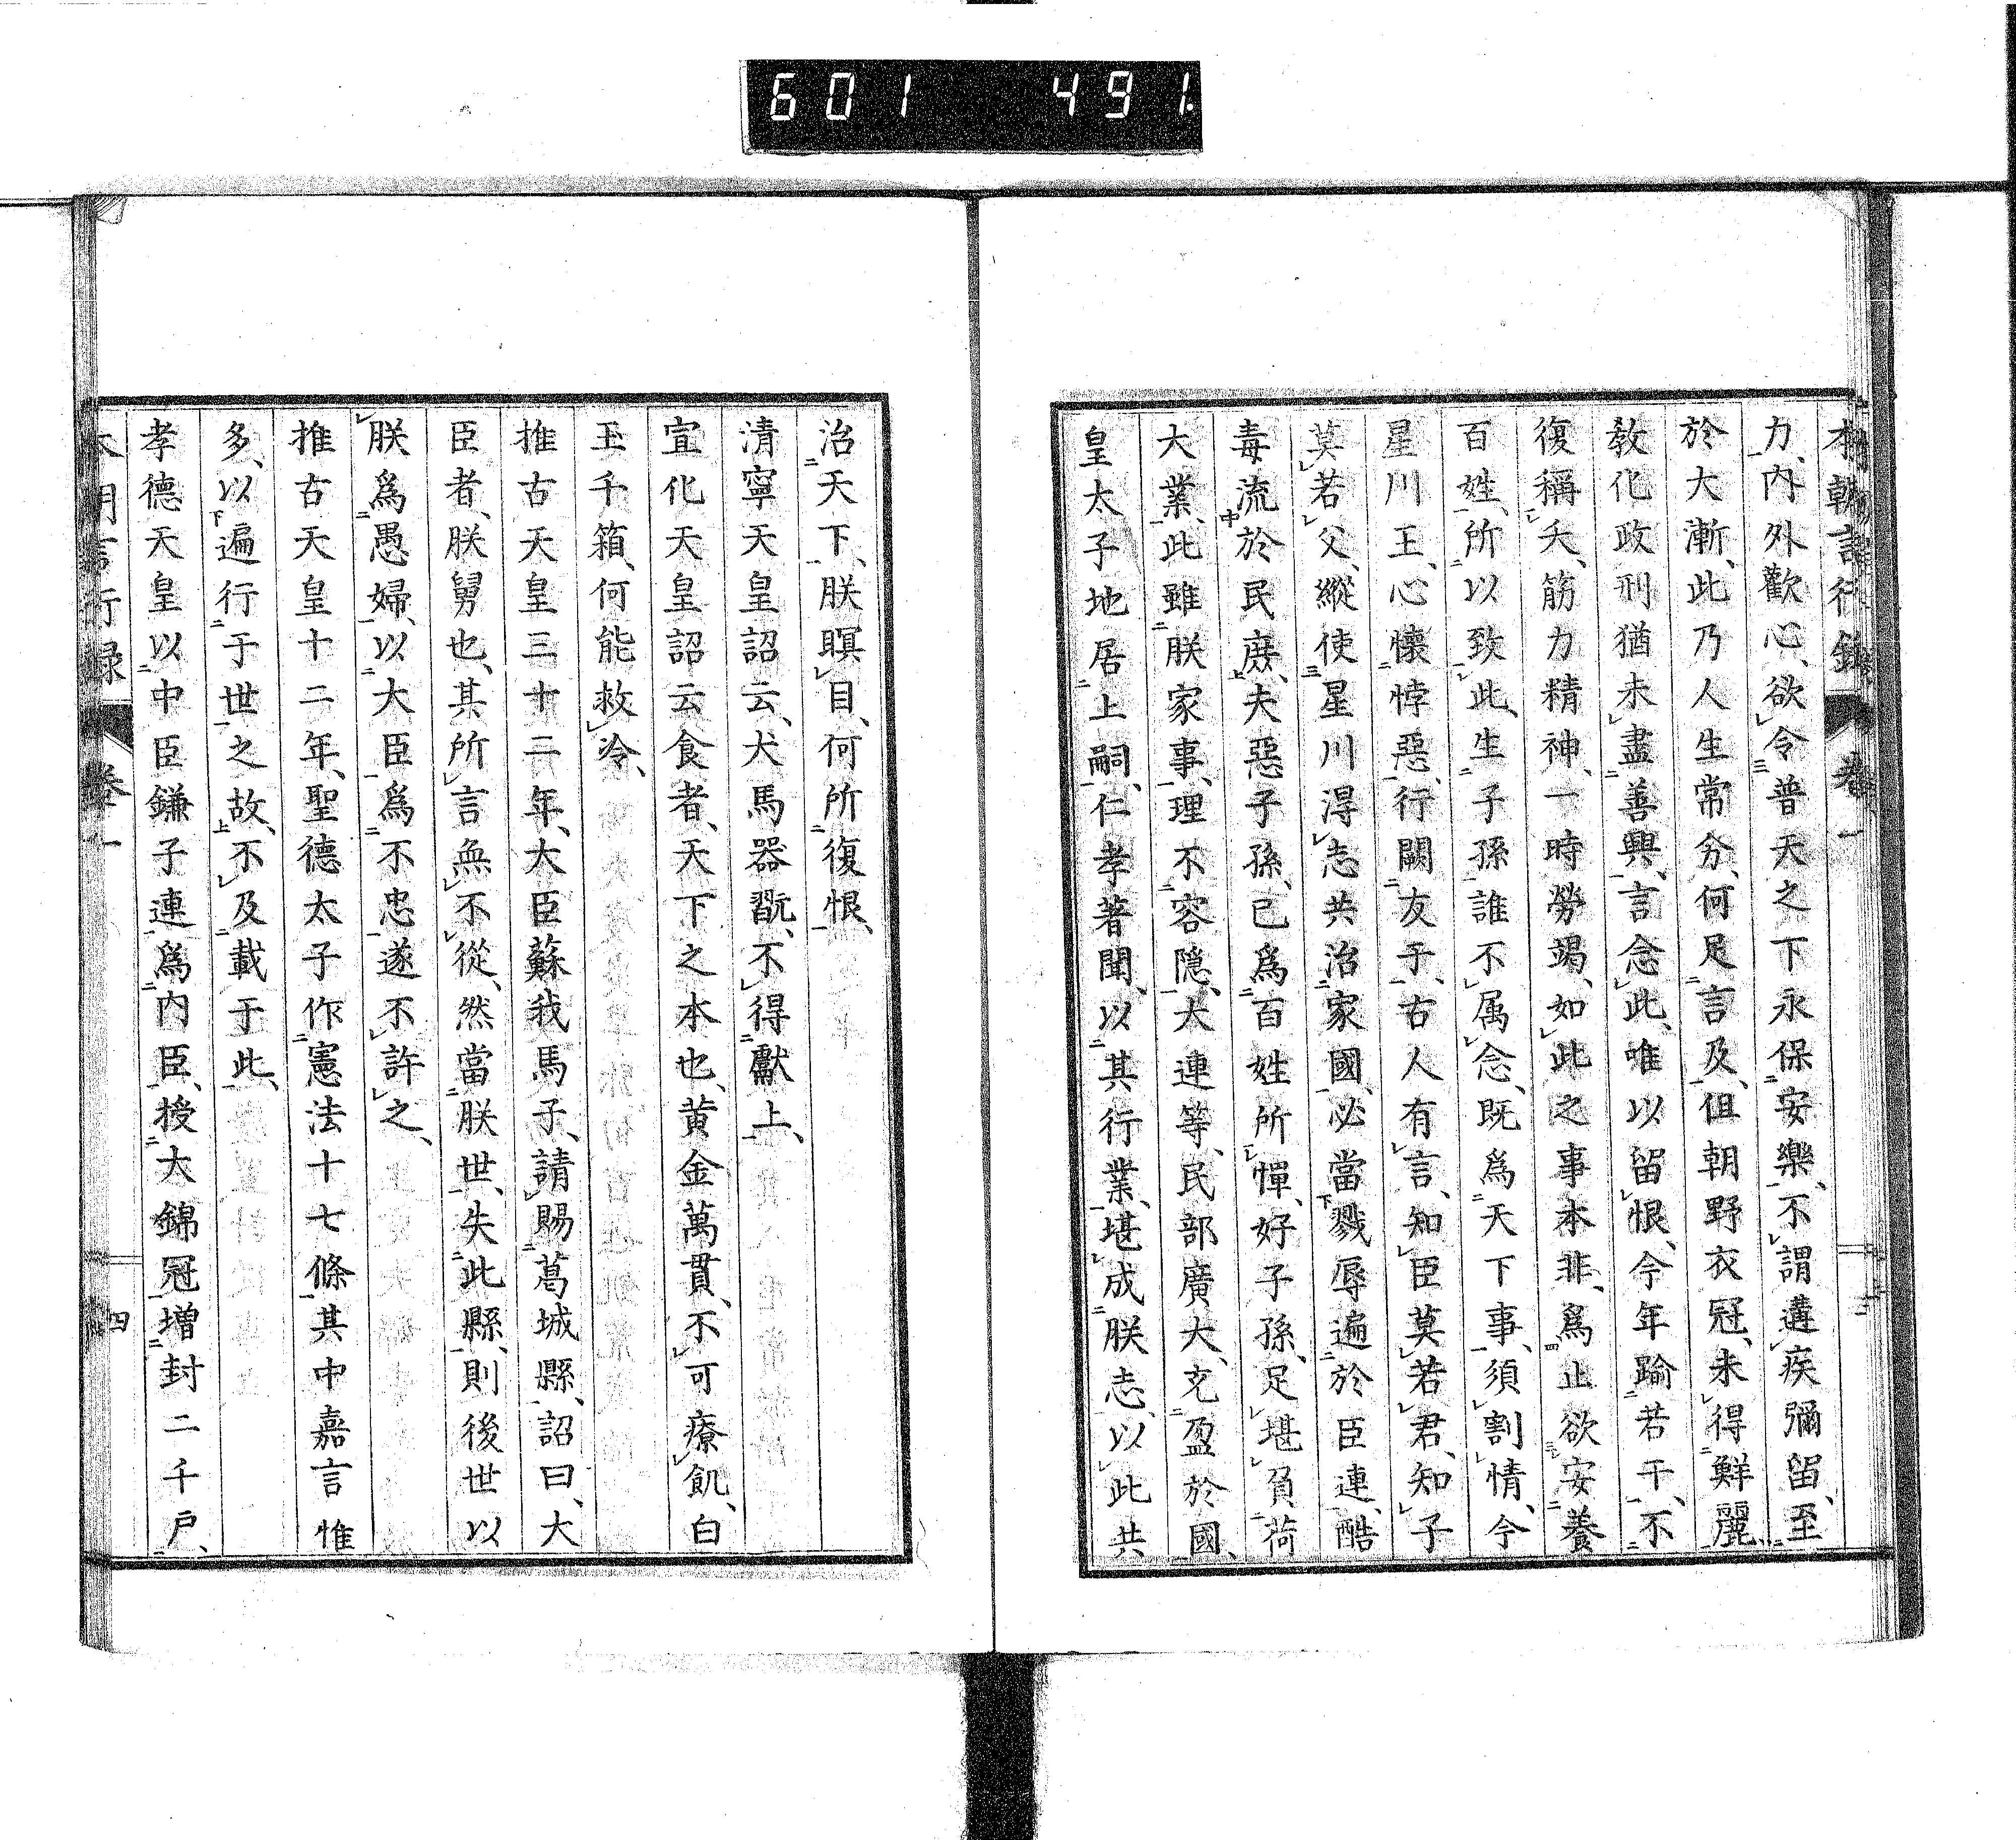 601 491
本朝言行錄 卷一
力、內外歡心、欲令普天之下永保安樂、不謂遘疾彌留、至
於大漸、此乃人生常分、何足言及、但朝野衣冠、未得鮮麗、
敎化政刑猶未盡善、興言念此、唯以留恨、今年踰若干、不
復稱夭、筋力精神、一時勞竭、如此之事本非、爲止欲安養
百姓、所以致此、生子孫誰不属念、既爲天下事、須割情、今
星川王、心懷悖惡、行闕友于、古人有言、知臣莫若君、知子
莫若父、縱使星川淂志共治家國、必當戮辱遍於臣連、酷
毒流於民庶、夫惡子孫、已爲百姓所憚、好子孫、足堪負荷
大業、此雖朕家事、理不容隱、大連等、民部廣大、充盈於國、
皇太子地居上嗣、仁孝著聞、以其行業、堪成朕志、以此共
治天下、朕瞑目、何所復恨、
清寧天皇詔云、犬馬器翫、不得獻上、
宣化天皇詔云食者、天下之本也、黄金萬貫、不可療飢、白
玉千箱、何能救冷、
推古天皇三十二年、大臣蘇我馬子、請賜葛城縣、詔曰、大
臣者、朕舅也、其所言無不從、然當朕世、失此縣、則後世以
朕爲愚婦、以大臣爲不忠、遂不許之、
推古天皇十二年、聖德太子作憲法十七條、其中嘉言惟
多、以遍行于世之故、不及載于此、
孝德天皇以中臣鎌子連爲內臣、授大錦冠、增封二千戶、
本朝言行録 卷一 四